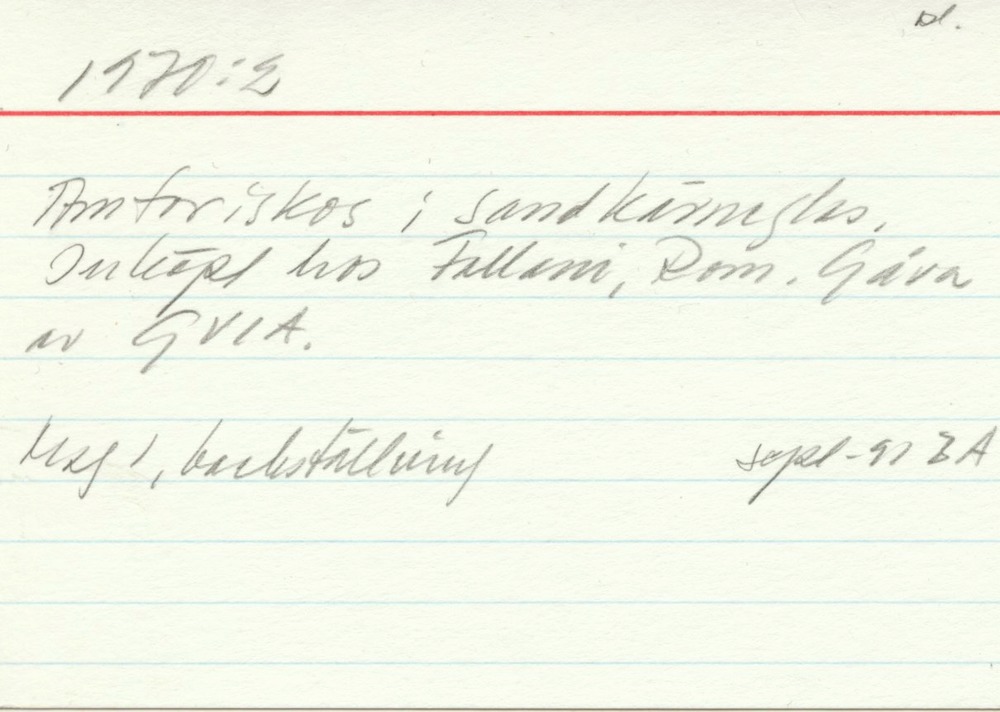 Dl.
1970:2
Amforiskos i sandkärneglas.
Inköpt hos Fallani, Rom. Gåva
av GVIA.
Mag 1, backställning sept -91 BA